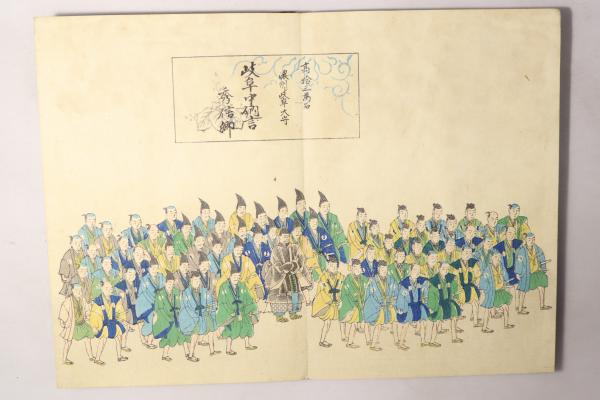 高拾三万石
濃州岐阜大守
岐阜中納言
秀信卿